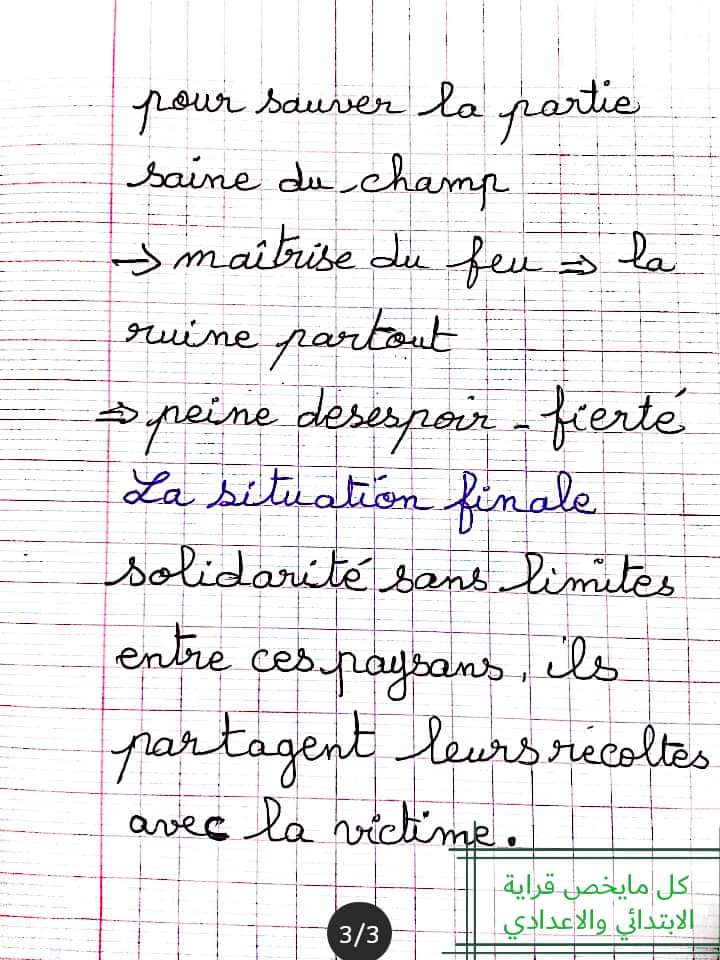 pour sauver la partie
saine du champ
→ maîtrise du feu ⇒ la
ruine partout
⇒ peine desespoir - fierté
La situation finale
solidarité sans limites
entre ces paysans, ils
partagent leurs récoltes
avec la victime.
كل مايخص قراية
الابتدائي والاعدادي
3/3